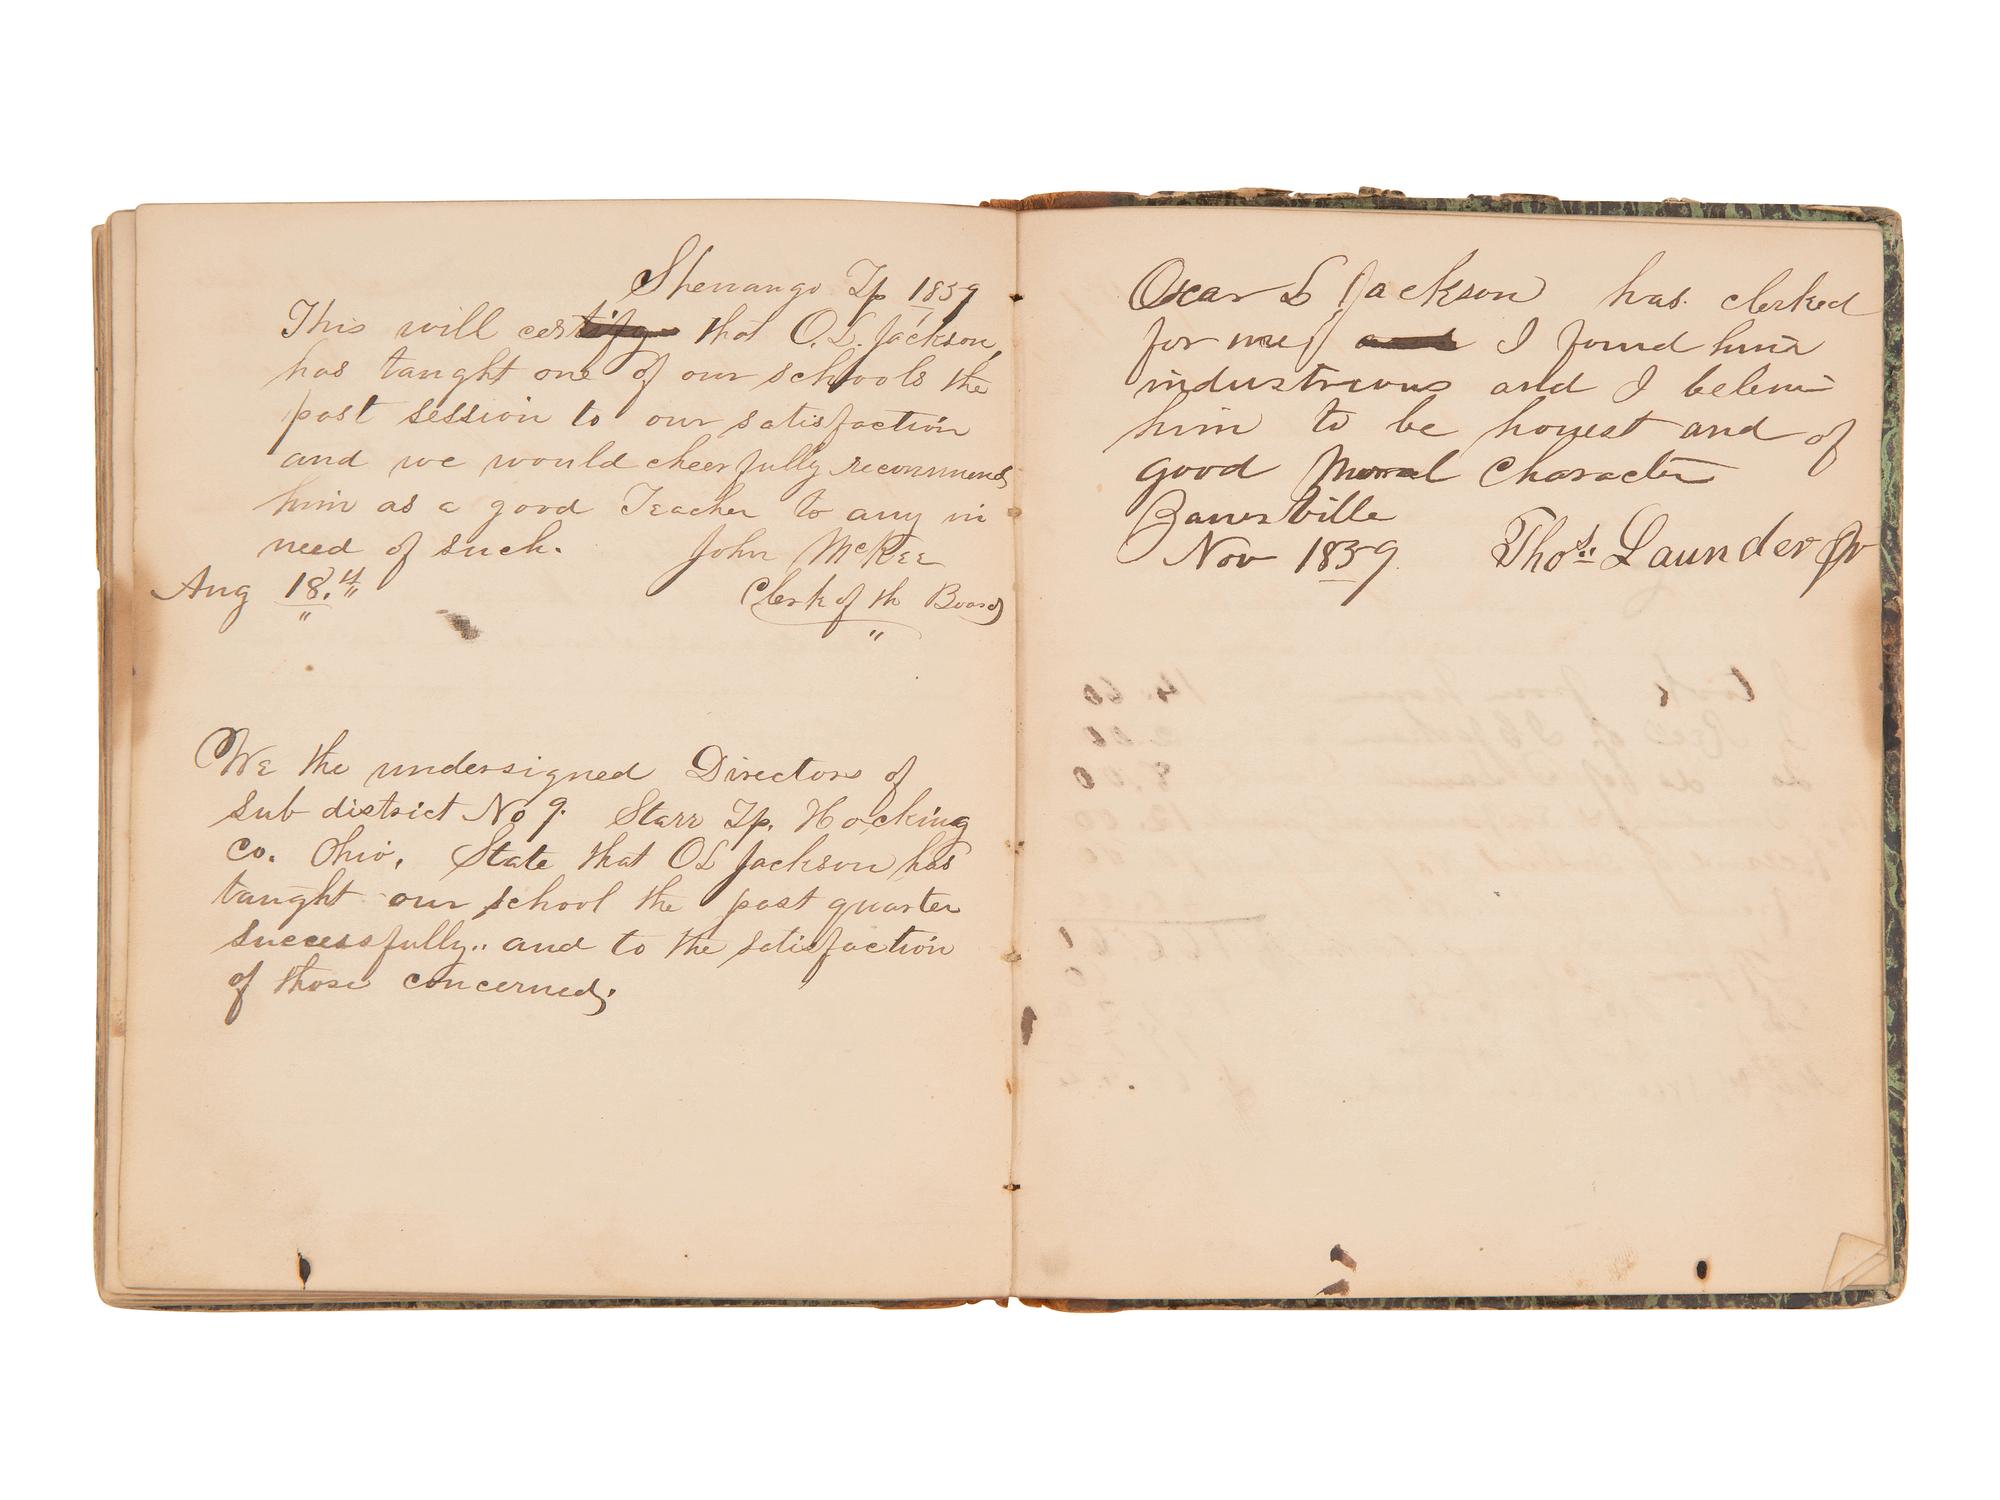 Shenango Tp 1859
This will certify that O. L. Jackson
has taught one of our schools the
past session to our satisfaction
and we would cheerfully recommend
him as a good Teacher to any in
need of such. John McKee
Aug 18.
Clerk of th Board
We the undersigned Directors of
sub district No 9. Starr Tp. Hocking
Co. Ohio, State that OL Jackson has
taught our school the past quarter
successfully.. and to the satisfaction
of those concerned.
Oscar L Jackson has clerked
for me I found him
industrious and I beleive
him to be honest and of
good Moral Character
Zanesville
Nov 1859. Thos. Launder Jr